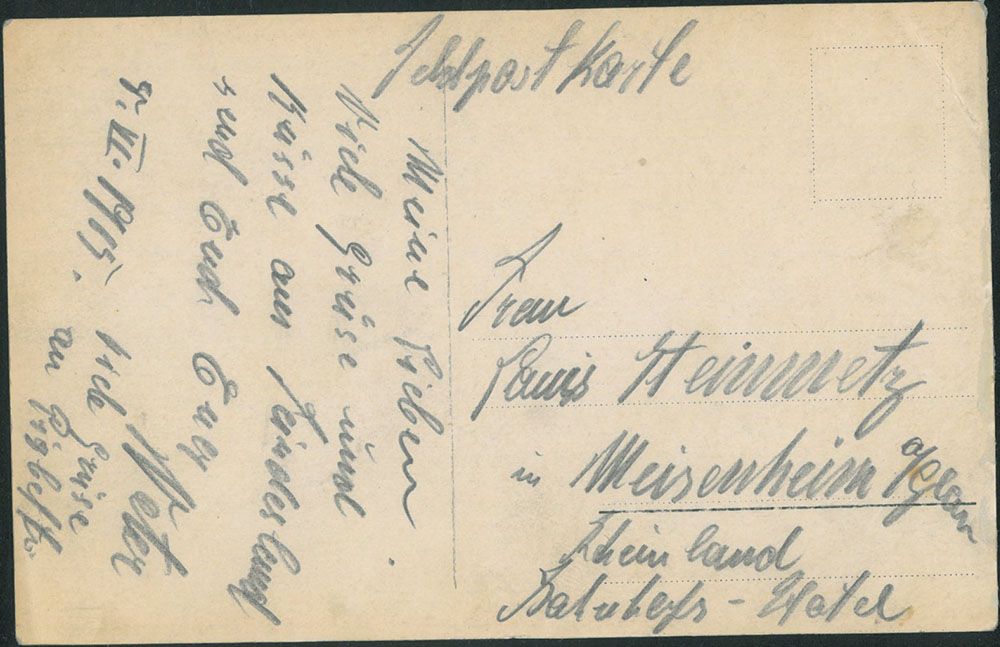 Feldpost Karte
Meine Lieben.
Viele Grüse und
Küsse aus Feindesland
send Euch Euer
Peter
9. VI. 1915. Viele Grüse
an
Frau
Louis Steinmetz
in Meisenheim a/Glan
Rheinland
Bahnhofs-Hotel